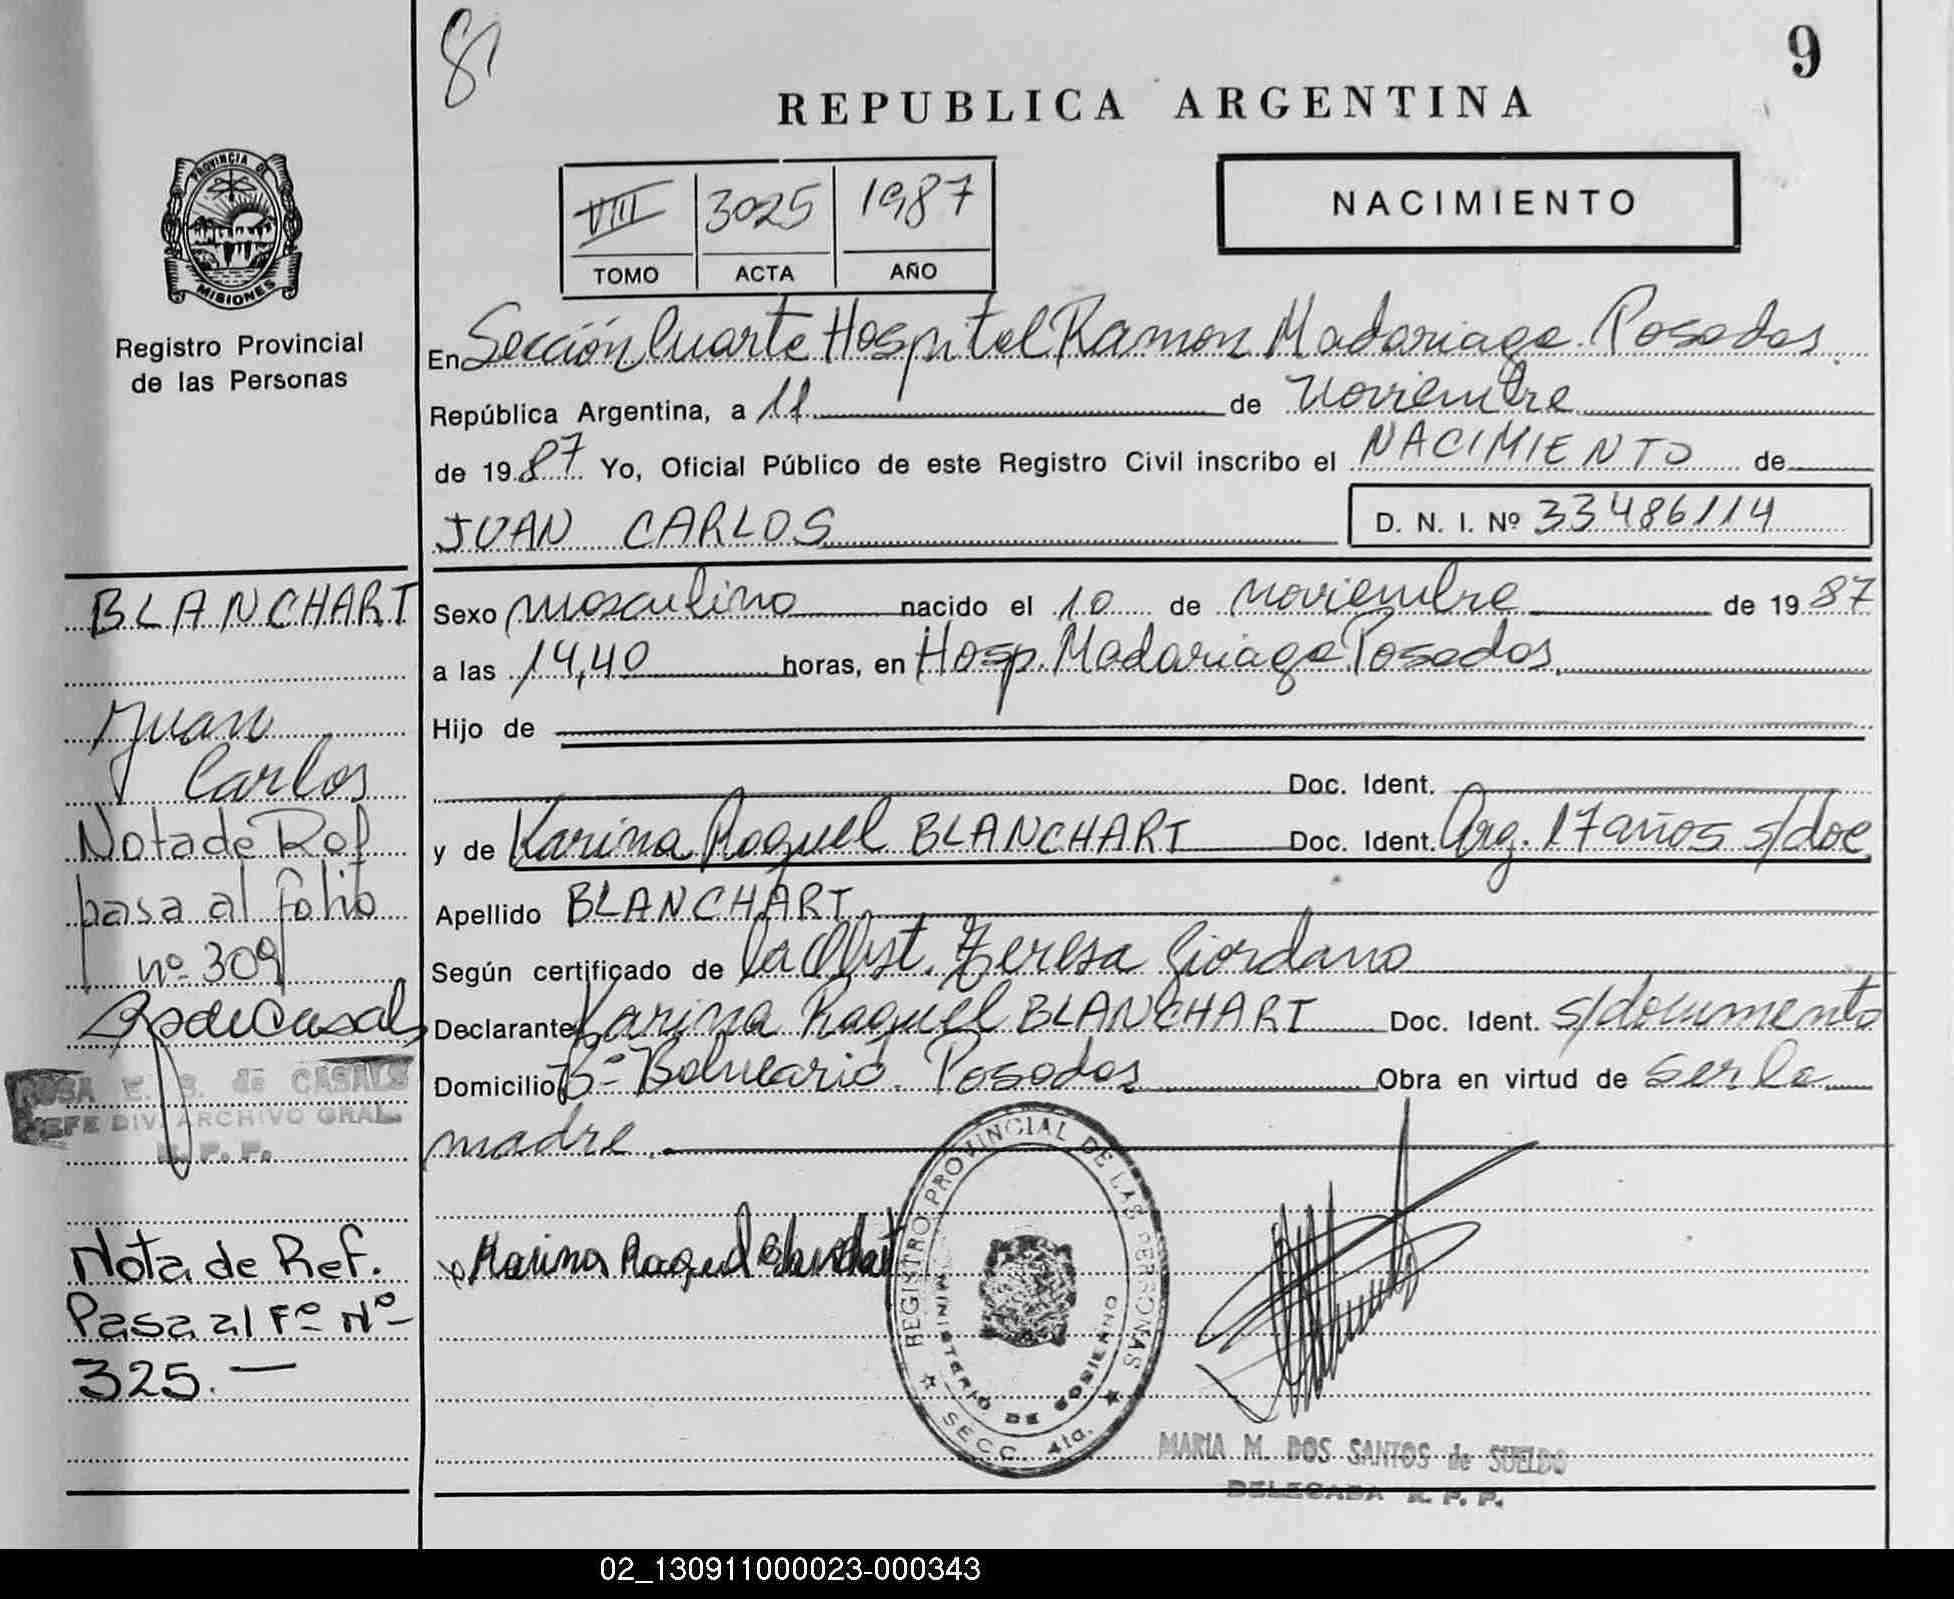 81
9
REPUBLICA ARGENTINA
PROVINCIA DE
MISIONES
Registro Provincial
de las Personas
VIII 3025 1987
TOMO ACTA AÑO
NACIMIENTO
En Sección Cuarta Hospital Ramon Madariaga. Posadas.
República Argentina, a 11 de Noviembre
de 1987 Yo, Oficial Público de este Registro Civil inscribo el NACIMIENTO de
JUAN CARLOS D. N. I. Nº 33486114
Sexo masculino nacido el 10 de noviembre de 1987
a las 14,40 horas, en Hosp. Madariaga Posadas
Hijo de
Doc. Ident.
y de Karina Raquel BLANCHART Doc. Ident. Arg. 17 años s/doc
Apellido BLANCHART
Según certificado de la Obst. Teresa Giordano
Declarante Karina Raquel BLANCHART Doc. Ident. s/documento
Domicilio Bº Balneario. Posadas Obra en virtud de ser la
madre.
Karina Raquel Blanchart
REGISTRO PROVINCIAL DE LAS PERSONAS
MINISTERIO DE GOBIERNO
SECC. 4ta.
MARIA M. DOS SANTOS de SUELDO
DELEGADA R. P. P.
BLANCHART
Juan
Carlos
Nota de Ref
pasa al folio
nº 309
ROSA E. S. de CASALS
JEFE DIV. ARCHIVO GRAL.
R. P. P.
Nota de Ref.
Pasa al Fº Nº
325.—
02_130911000023-000343